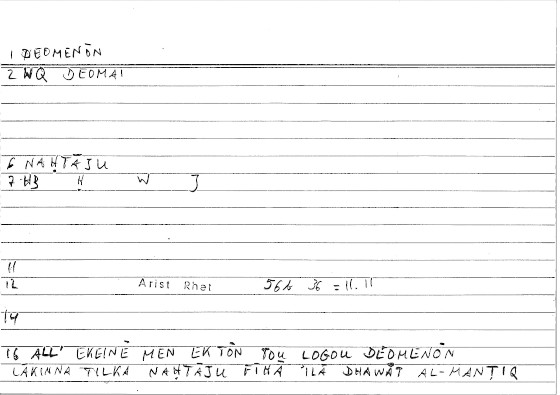 1 DEOMENŌN
2 WQ DEOMAI
6 NAḤTĀJU
7 ḤB Ḥ W J
11
12 Arist Rhet 56b 36 = 11.11
14
16 ALL' EKEINĒ MEN EK TŌN TOU LOGOU DEOMENŌN
LĀKINNA TILKA NAḤTĀJU FĪHĀ 'ILĀ DHAWĀT AL-MANṬIQ